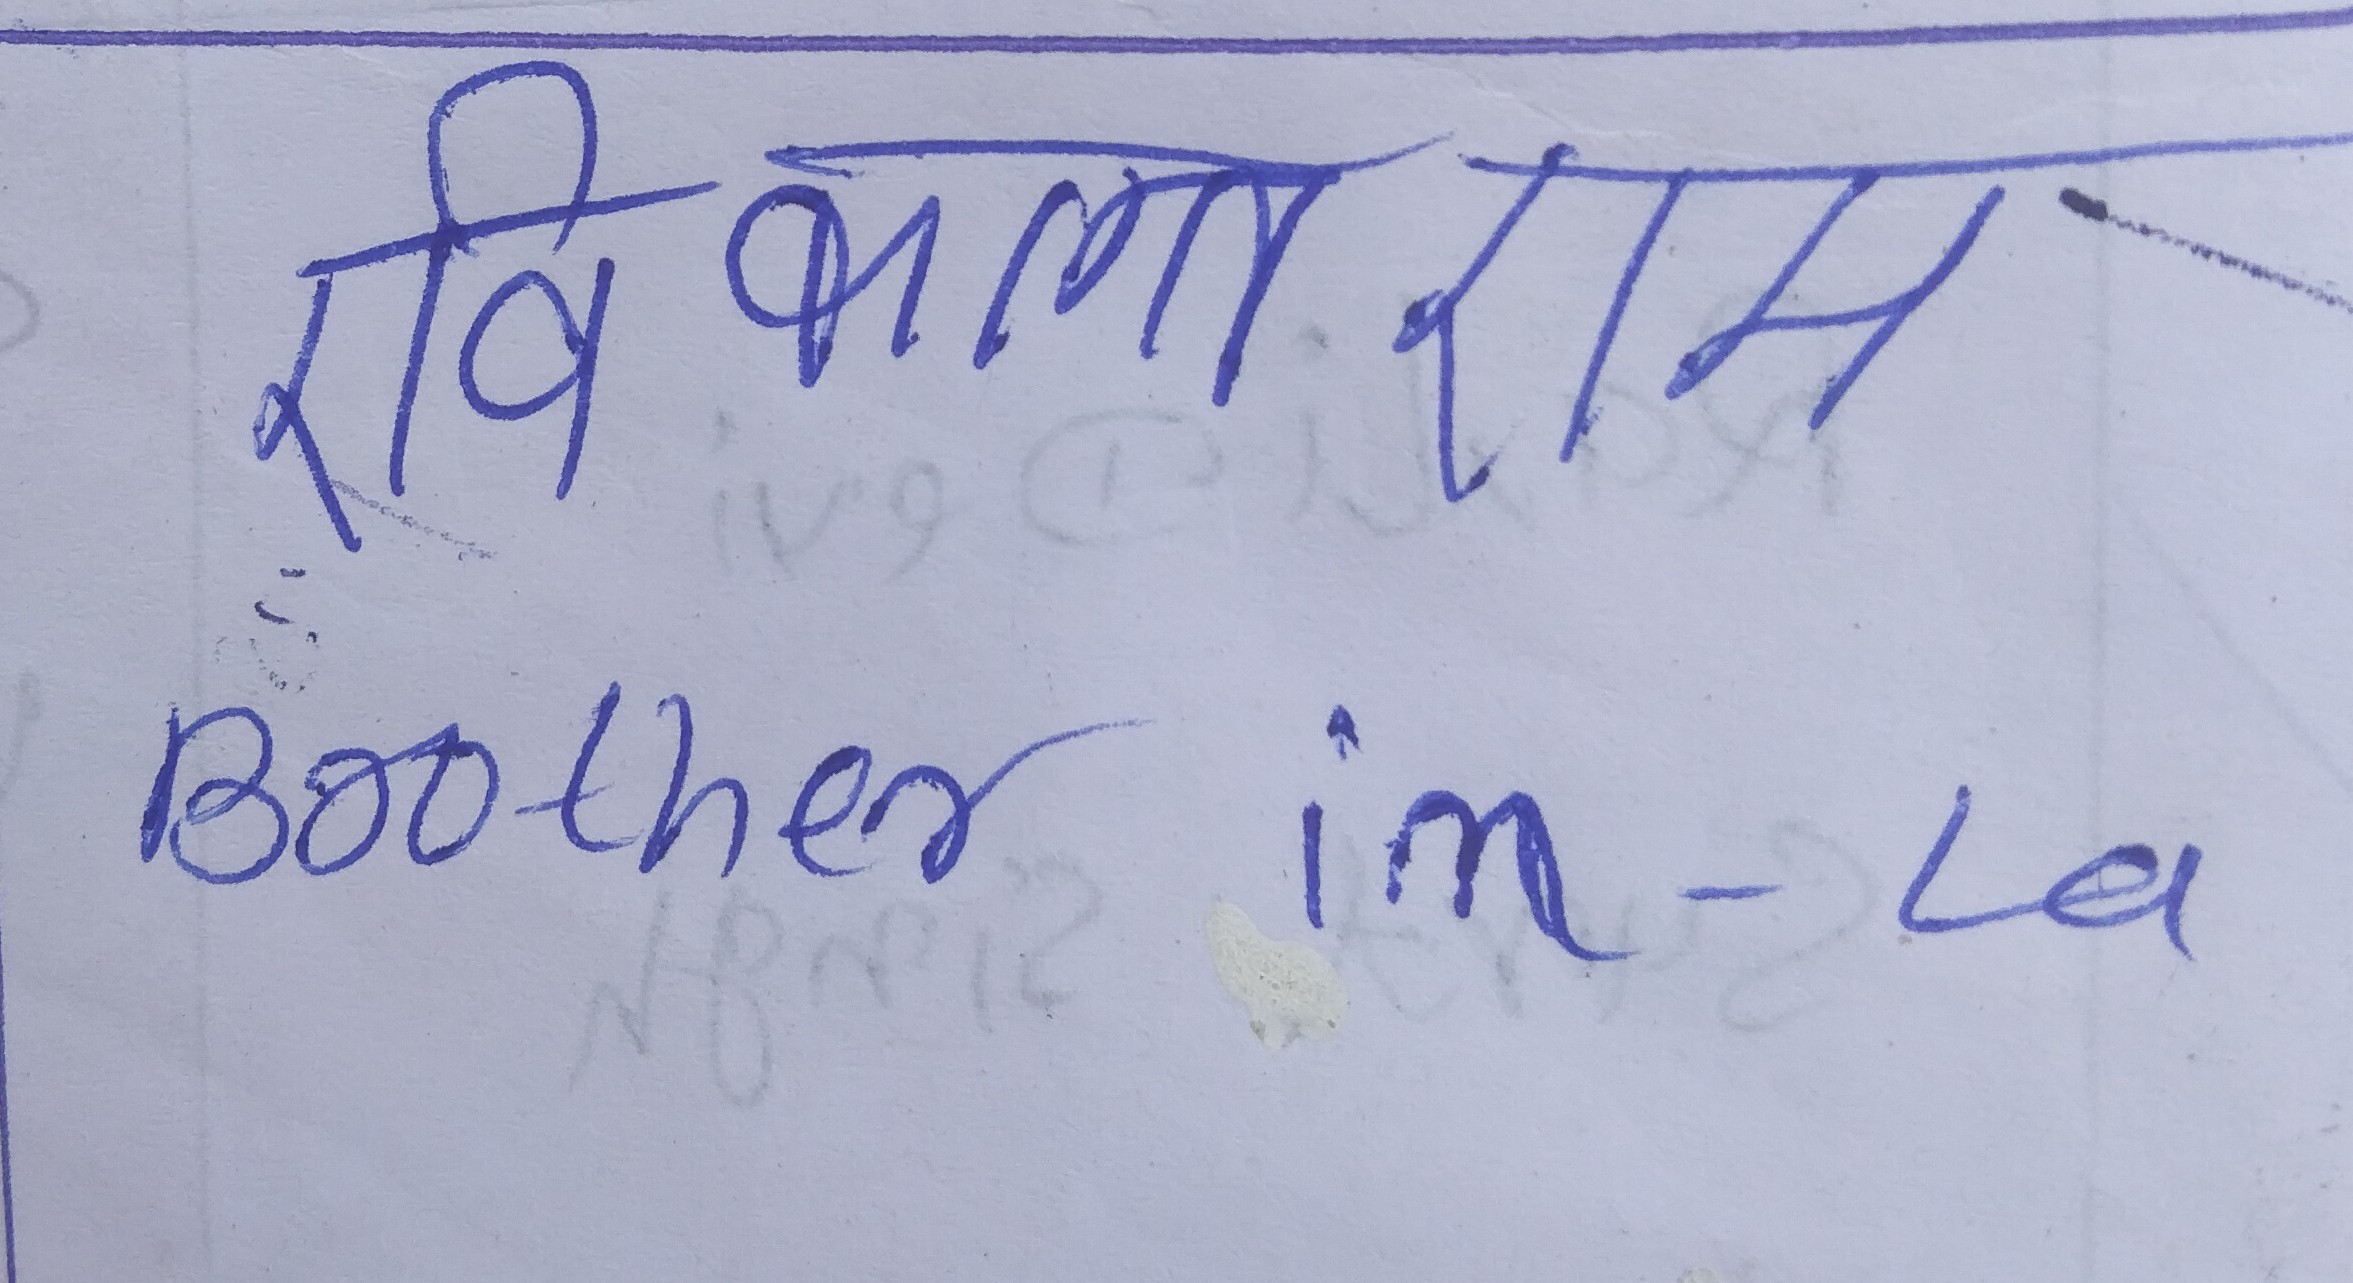 रवि कला राम
Brother in-La